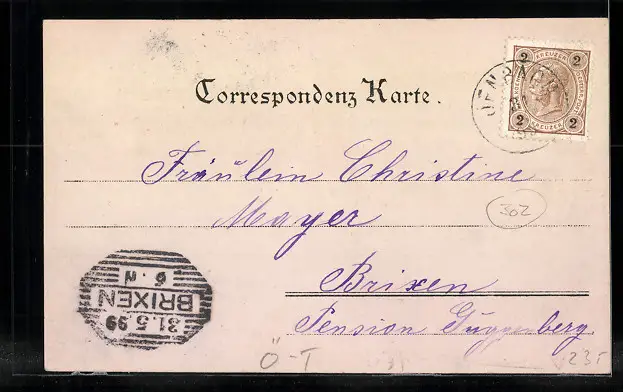 Correspondenz Karte.
2 KREUZER 2
2 KREUZER 2
JENBACH
Fräulein Christine
Mayer
302
Brixen
Pension Guggenberg
31.5.99
BRIXEN
6. N
Ö-T
235